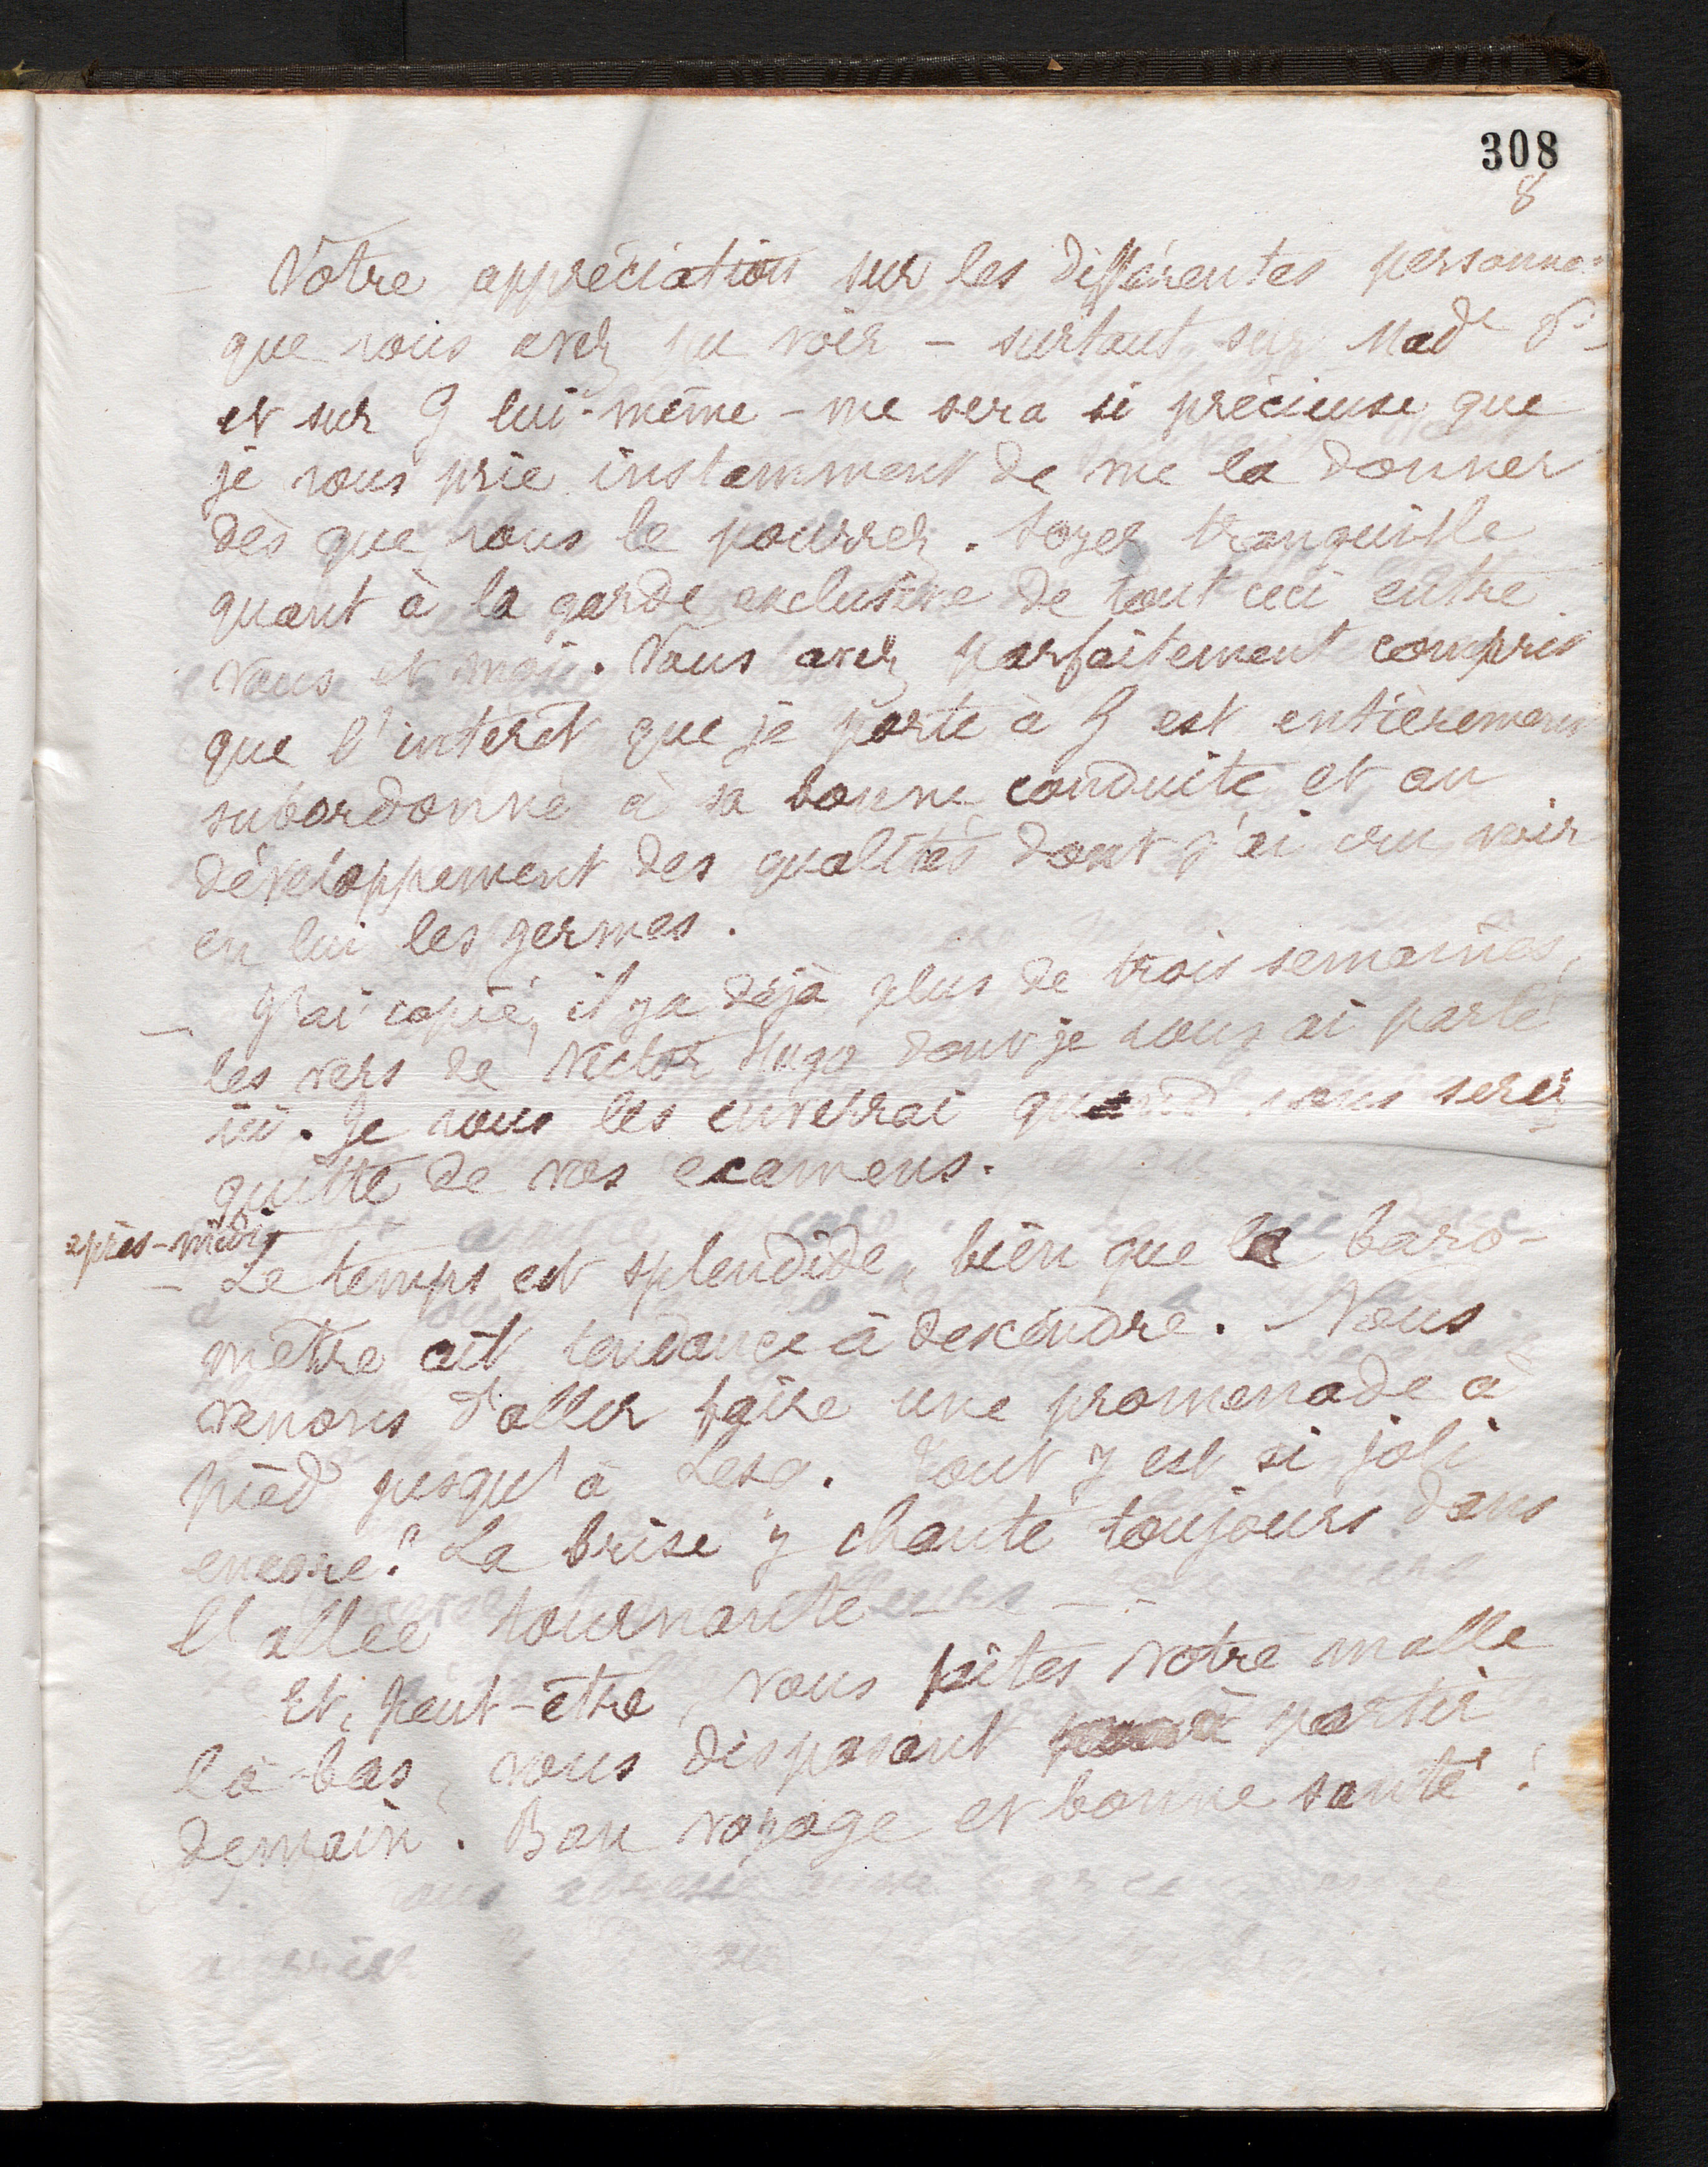 308
8
— Votre appréciation sur les différentes personnes
que vous avez pu voir – surtout sur Made
et sur G lui-même – me sera si précieuse que
je vous prie instamment de me la donner
dès que vous le pourrez. Soyez tranquille
quant à la garde exclusive de tout ceci entre
vous et moi. Vous avez parfaitement compris
que l'intérêt que je porte à G est entièrement
subordonné à sa bonne conduite et au
développement des qualités dont j'ai cru voir
en lui les germes.
— J'ai copié, il y a déjà plus de trois semaines,
les vers de Victor Hugo dont je vous ai parlé
ici. Je vous les enverrai quand vous serez
quitte de vos examens.
après-midi
— Le temps est splendide, bien que le baro-
mètre ait tendance à descendre. Nous
venons d'aller faire une promenade à
pied jusqu'à Lesq. Tout y est si joli
encore! La brise y chante toujours dans
l'allée tournante
Et, peut-être, vous faites votre malle
là-bas, vous disposant à partir
demain. Bon voyage et bonne santé!